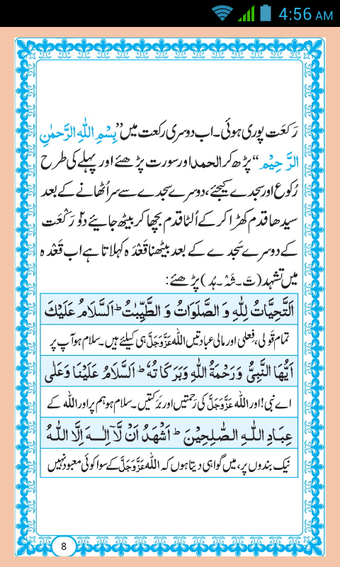 4:56 AM
رَکعَت پوری ہوئی۔ اب دوسری رکعت میں ”بِسْمِ اللّٰہِ الرَّحمٰنِ
الرَّحِیْم“ پڑھ کر الحمد اور سورت پڑھئے اور پہلے کی طرح
رُکوع اور سجدے کیجئے، دوسرے سجدے سے سر اُٹھانے کے بعد
سیدھا قدم کھڑا کر کے اُلٹا قدم بچھا کر بیٹھ جائیے دو رَکْعَت
کے دوسرے سَجدے کے بعد بیٹھنا قَعْدَہ کہلاتا ہے اب قَعْدَہ
میں تشہد (تَ۔شَہْ۔ہُد) پڑھئے:
اَلتَّحِیَّاتُ لِلّٰہِ وَ الصَّلَوَاتُ وَ الطَّیِّبٰتُ ؕ اَلسَّلَامُ عَلَیْكَ
تمام قولی، فعلی اور مالی عبادتیں اللہ عَزَّوَجَلَّ ہی کیلئے ہیں۔ سلام ہو آپ پر
اَیُّھَا النَّبِیُّ وَرَحْمَۃُ اللّٰہِ وَبَرَکَاتُہٗ ؕ اَلسَّلَامُ عَلَیْنَا وَعَلٰی
اے نبی! اور اللہ عَزَّوَجَلَّ کی رَحمتیں اور بَرَکتیں۔ سلام ہو ہم پر اور اللہ کے
عِبَادِ اللّٰہِ الصّٰلِحِیْنَ ؕ اَشْھَدُ اَنْ لَّاۤ اِلٰـہَ اِلَّا اللّٰہُ
نیک بندوں پر، میں گواہی دیتا ہوں کہ اللہ عَزَّوَجَلَّ کے سوا کوئی معبود نہیں
8